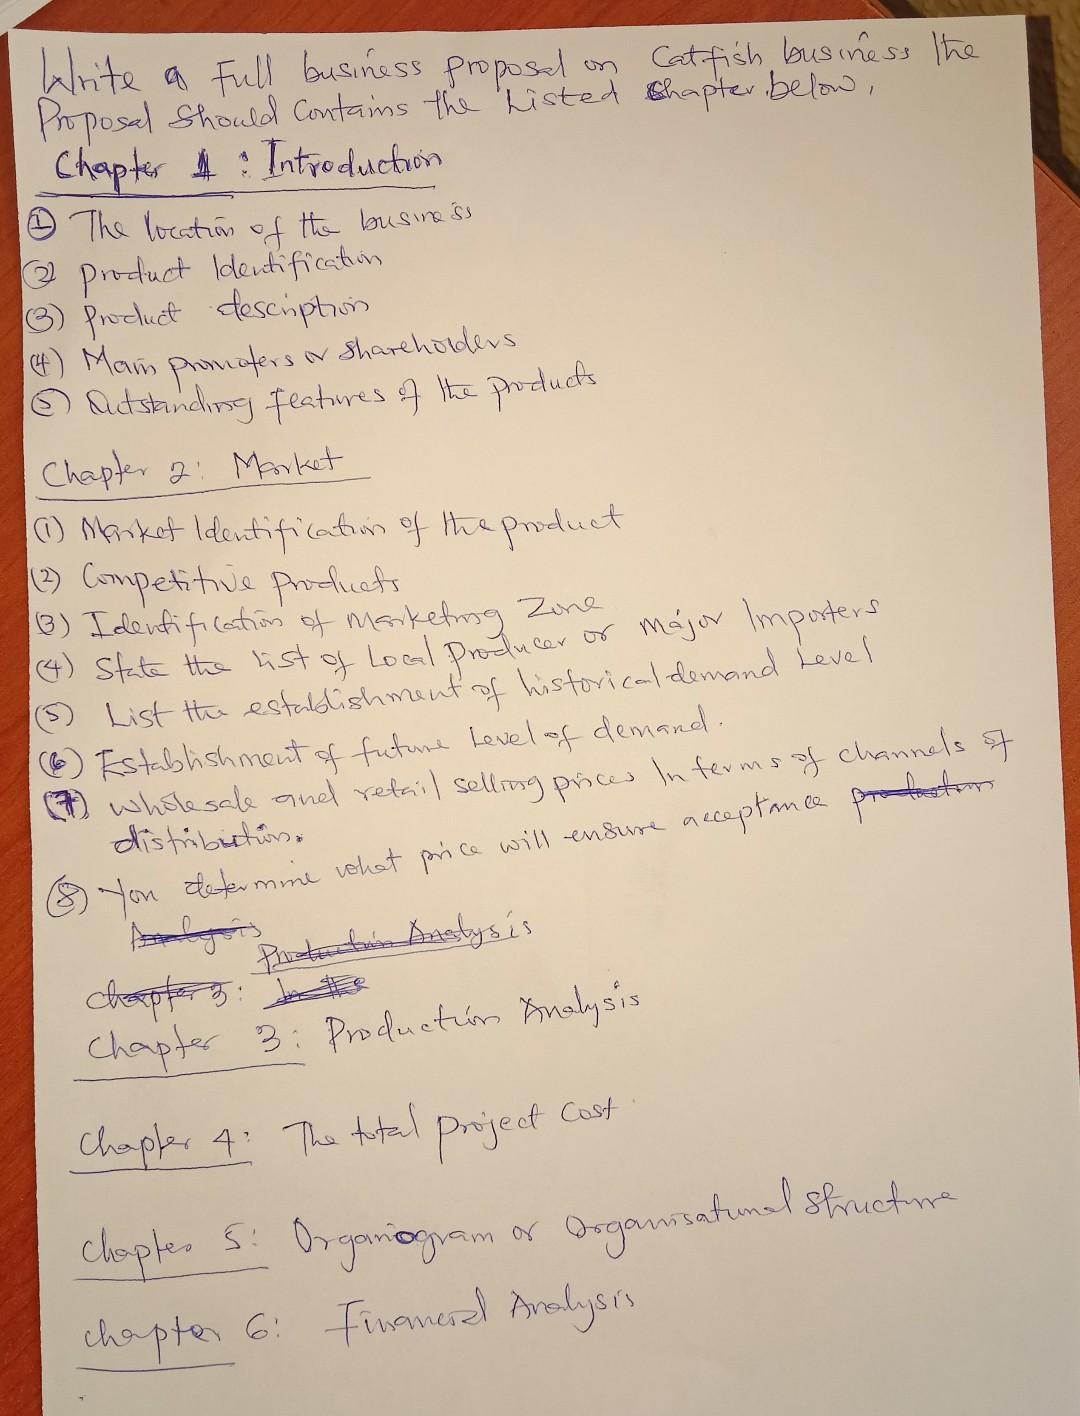 Write a Full business proposal on Catfish business the
Proposal Should Contains the Listed Chapter below,
Chapter 1 : Introduction
① The location of the business
② product Identification
③ product description
(4) Main promoters or shareholders
⑤ Outstanding features of the products
Chapter 2: Market
(1) Market Identification of the product
(2) Competitive products
(3) Identification of Marketing Zone
(4) State the list of Local producer or major Importers
(5) List the establishment of historical demand Level
(6) Establishment of future Level of demand.
(7) wholesale and retail selling prices In terms of channels of
distribution.
(8) You determine what price will ensure acceptance production
Analysis
Production Analysis
chapter 3: In the
Chapter 3: Production Analysis
Chapter 4: The total project Cost
Chapter 5: Organiogram or Organisational Structure
chapter 6: Financial Analysis